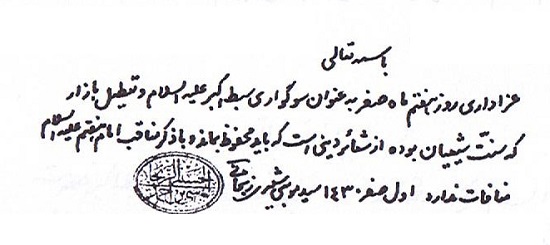 باسمه تعالی
عزاداری روز هفتم ماه صفر به عنوان سوگواری سبط اکبر علیه السلام و تعطیل بازار
که سنّت شیعیان بوده از شعائر دینی است که باید محفوظ بماند و با ذکر مناقب امام هفتم علیه السلام
منافات ندارد اول صفر ۱۴۳۰ سید موسی شبیری زنجانی